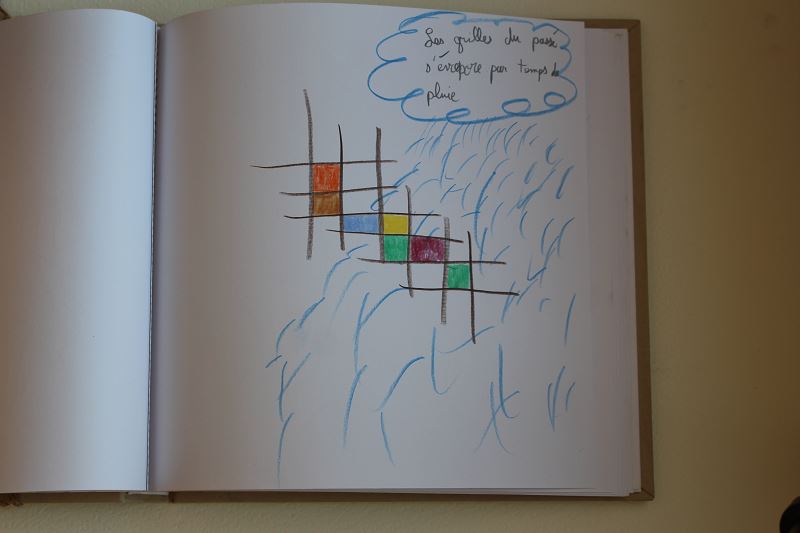 Les grilles du passé
s'évapore par temps de
pluie